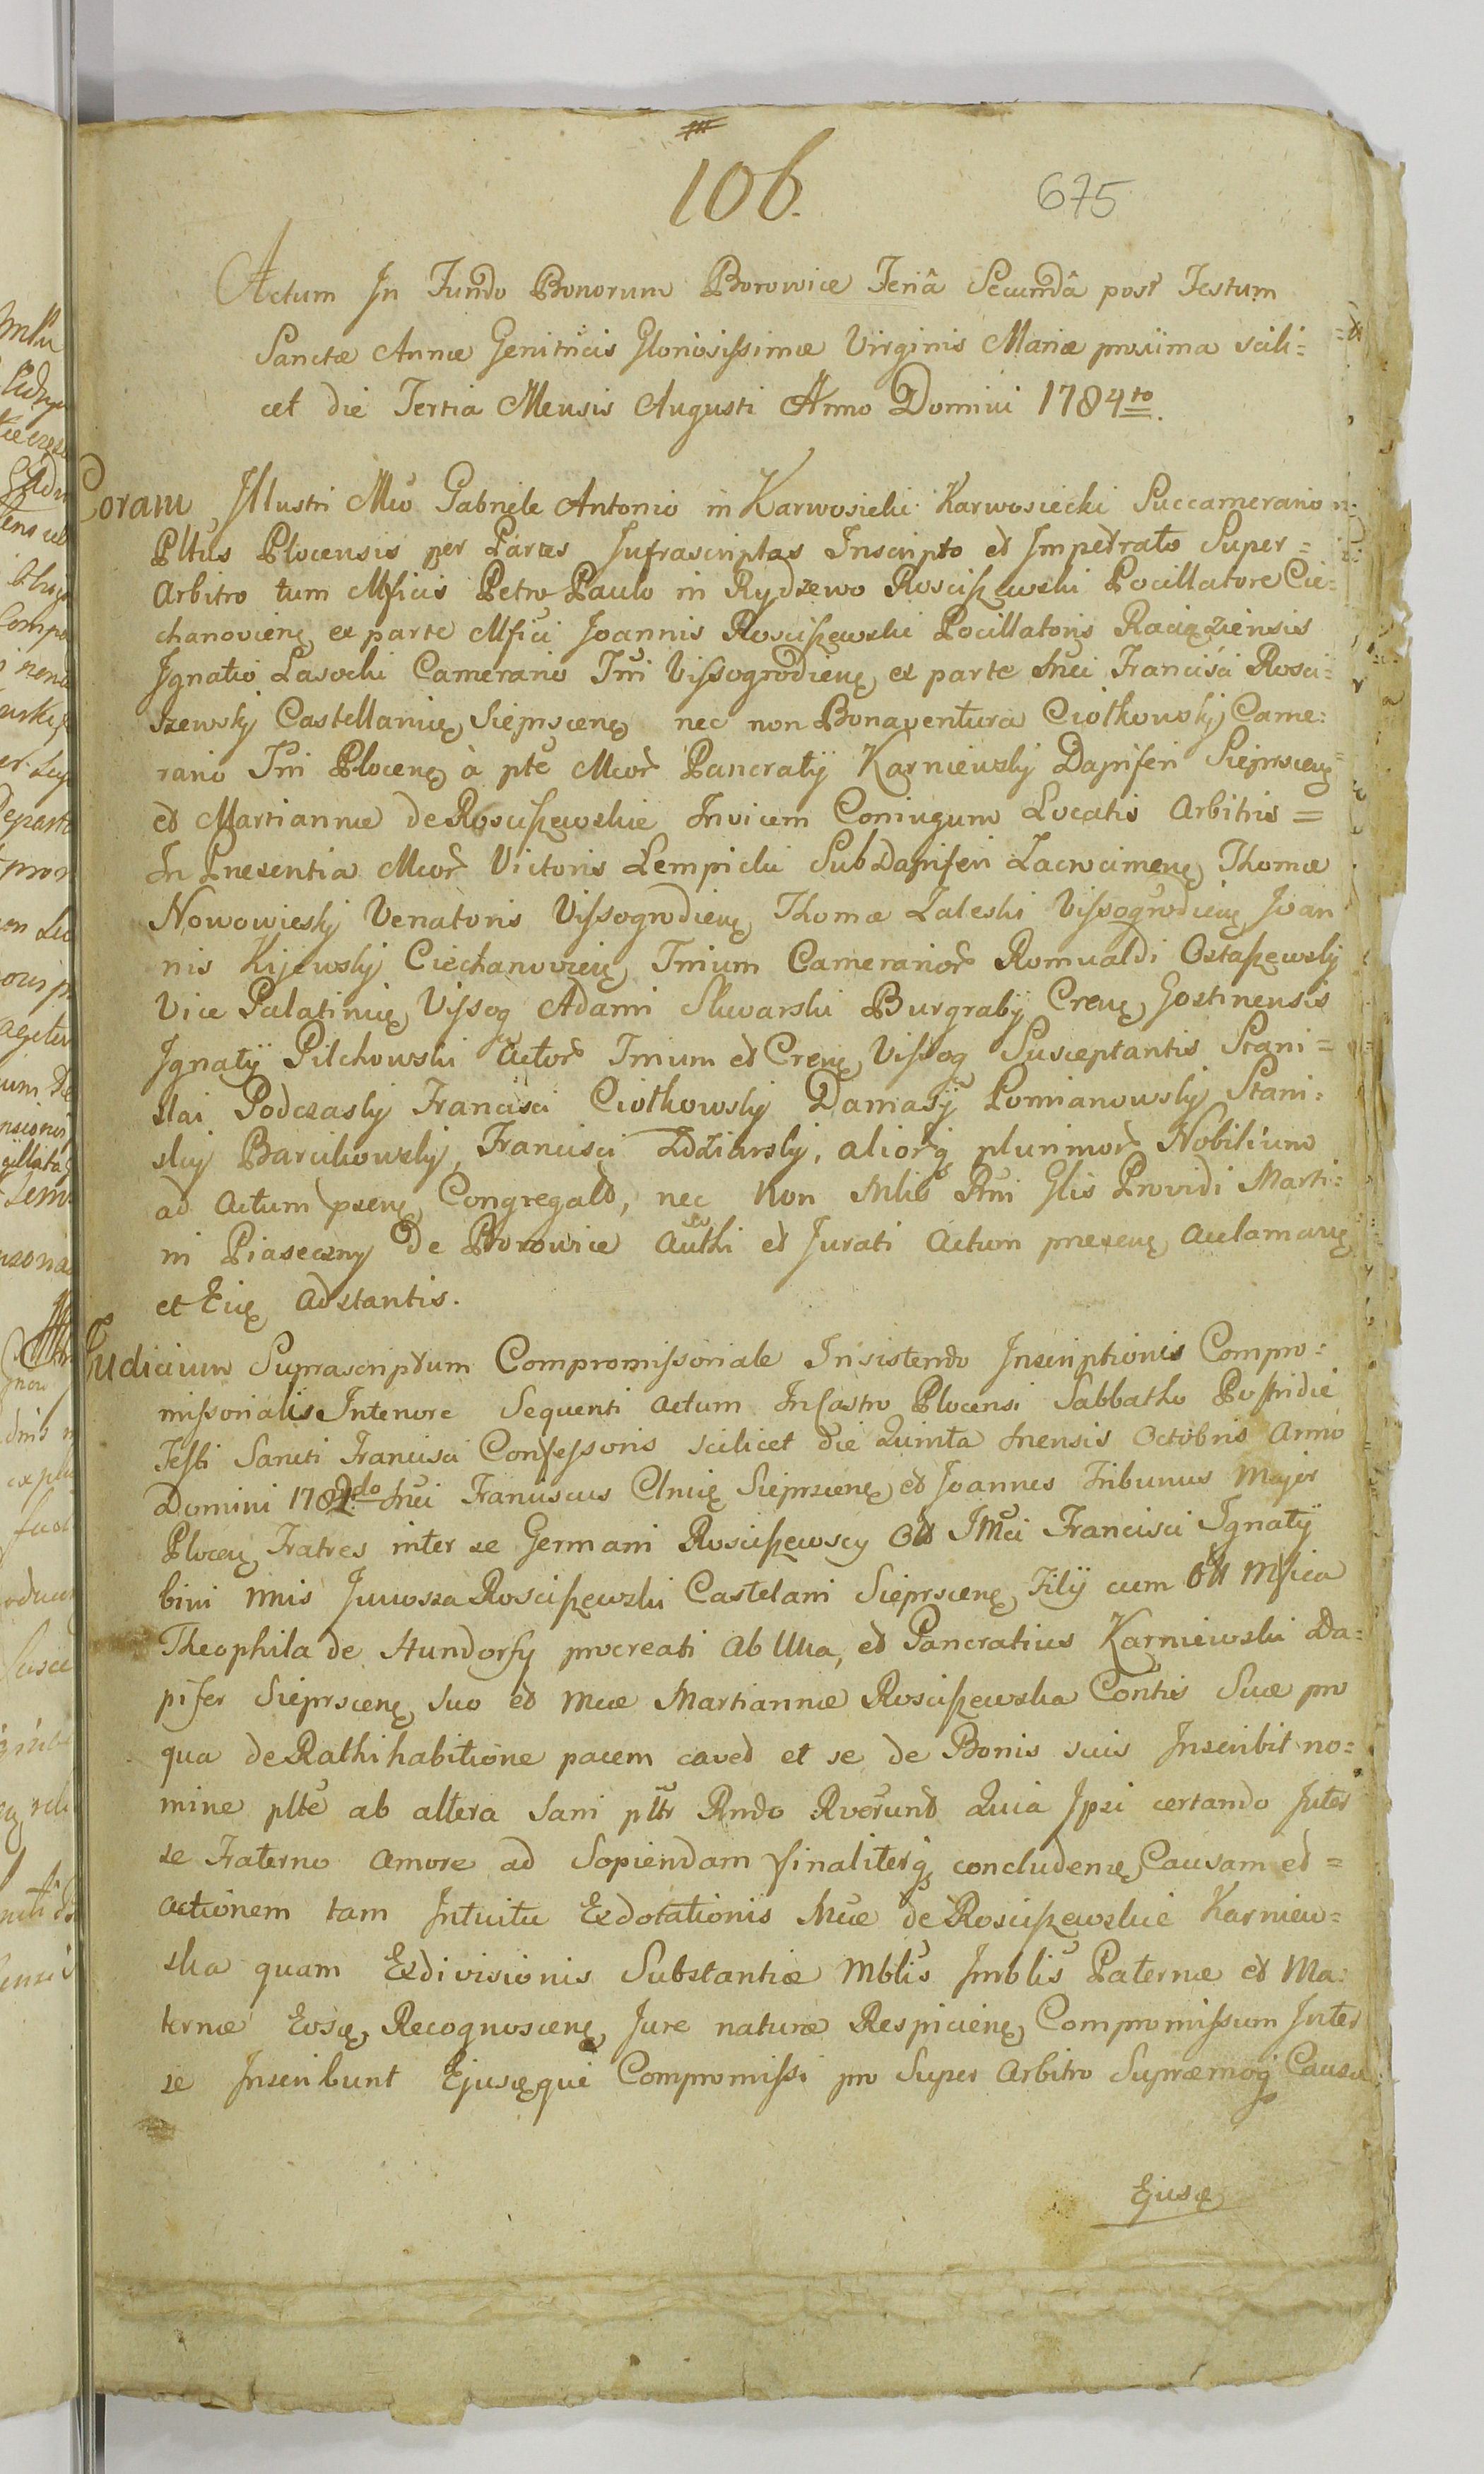 106.
675
Actum In Fundo Bonorum Borowice Feriâ Secundâ post Festum
Sanctæ Annæ Genitricis Gloriosissimæ Virginis Mariæ proxima scili=
cet die Tertia Mensis Augusti Anno Domini 1784to.
Coram Illustri Mco Gabriele Antonio in Karwosieki Karwosiecki Succamerario
Pltus Plocensis per Partes Infrascriptas Inscripto et Impetrato Super=
Arbitro tum Mficis Petro Paulo in Rydzewo Rosciszewski Pocillatore Cie=
chanovienę ex parte Mfici Joannis Rosciszewski Pocillatoris Raciąziensis
Ignatio Lasocki Camerario Tri Vissogrodienę ex parte Mci Francisci Rosci=
szewsky Castellanię Sieprscenę nec non Bonaventura Ciotkowsky Came:
rario Tri Plocenę à pte Mcor Pancratÿ Karniewsky Dapiferi Sieprscenę
et Martiannæ de Rosciszewskie Invicem Coniugum Locatis Arbitris =
In Presentia Mcor Victoris Lempicki SubDapiferi Zacrocimenę Thomæ
Nowowiesky Venatoris Vissogrodienę Thomæ Zaleski Vissogrodienę Joan
nis Kijewsky Ciechanovienę Trium Camerarior Romualdi Ostaszewsky
Vice Palatinię Vissog Adami Skwarski Burgrabÿ Crenę Gostinensis
Ignatÿ Pilchowski Actor Trium et Crenę Vissog Susceptantis Stani=
slai Podczasky Francisci Ciotkowsky Damasÿ Lomianowsky Stani:
slaj Barcikowsky, Francisci Zdziarsky, aliorq plurimor Nobilium
ad actum psenę Congregato, nec Non Mlis Rni Glis Providi Marti:
ni Piaseczny de Borowice authi et Jurati Actum presenę aclamanę
et Eię adstantis.
Judicium Suprascriptum Compromissoriale Insistendo Inscriptionis Compro:
missorialis Intenore Sequenti Actum InCastro Plocensi Sabbatho Postridie
Festi Sancti Francisci Confessoris scilicet die Quinta Mensis Octobris Anno
Domini 1782do Mci Franciscus Clnię Sieprscenę et Joannes Tribunus Major
Plocenę Fratres inter se Germani Rosciszewscy Olt IMci Francisci Ignatÿ
bini nnis Junosza Rosciszewski Castelani Sieprscenę Filÿ cum Olt Mfica
Theophila de Hundorfy procreati Ab Una, et Pancratius Karniewski Da=
pifer Sieprscenę Suo et Mcæ Martiannæ Rosciszewska Contis Suæ pro
qua de Rathihabitione pacem caved et se de Bonis suis Inscribit no=
mine plte ab altera Sani pltr Rndo Rverunt Quia Ipsi certando Inter
se Fraterno Amore ad Sopiendam finaliterq concludenę Causam et =
actionem tam Intuitu Exdotationis Mcæ de Rosciszewskie Karniew=
ska quam Exdivisionis Substantiæ Mblis Imblis Paternæ et Ma:
ternæ Eosę Recognoscenę Jure naturæ Respicienę Compromissum Inter
se Inscribunt Ejusęque Compromissi pro Super Arbitro Supræmoq Causæ
Ejusę